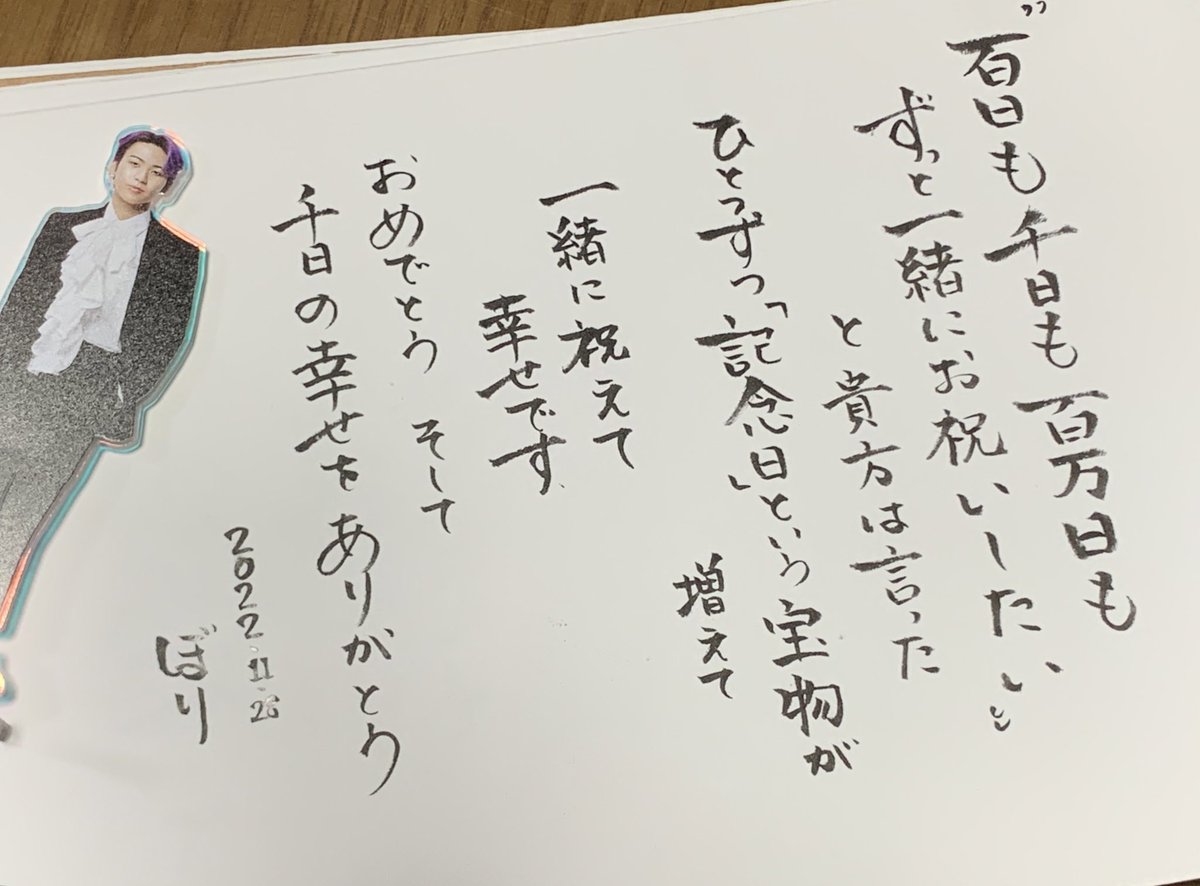 "百日も千日も百万日も
ずっと一緒にお祝いしたい"
と貴方は言った
ひとつずつ「記念日」という宝物が
増えて
一緒に祝えて
幸せです
おめでとう そして
千日の幸せをありがとう
2022.11.28
ぽり